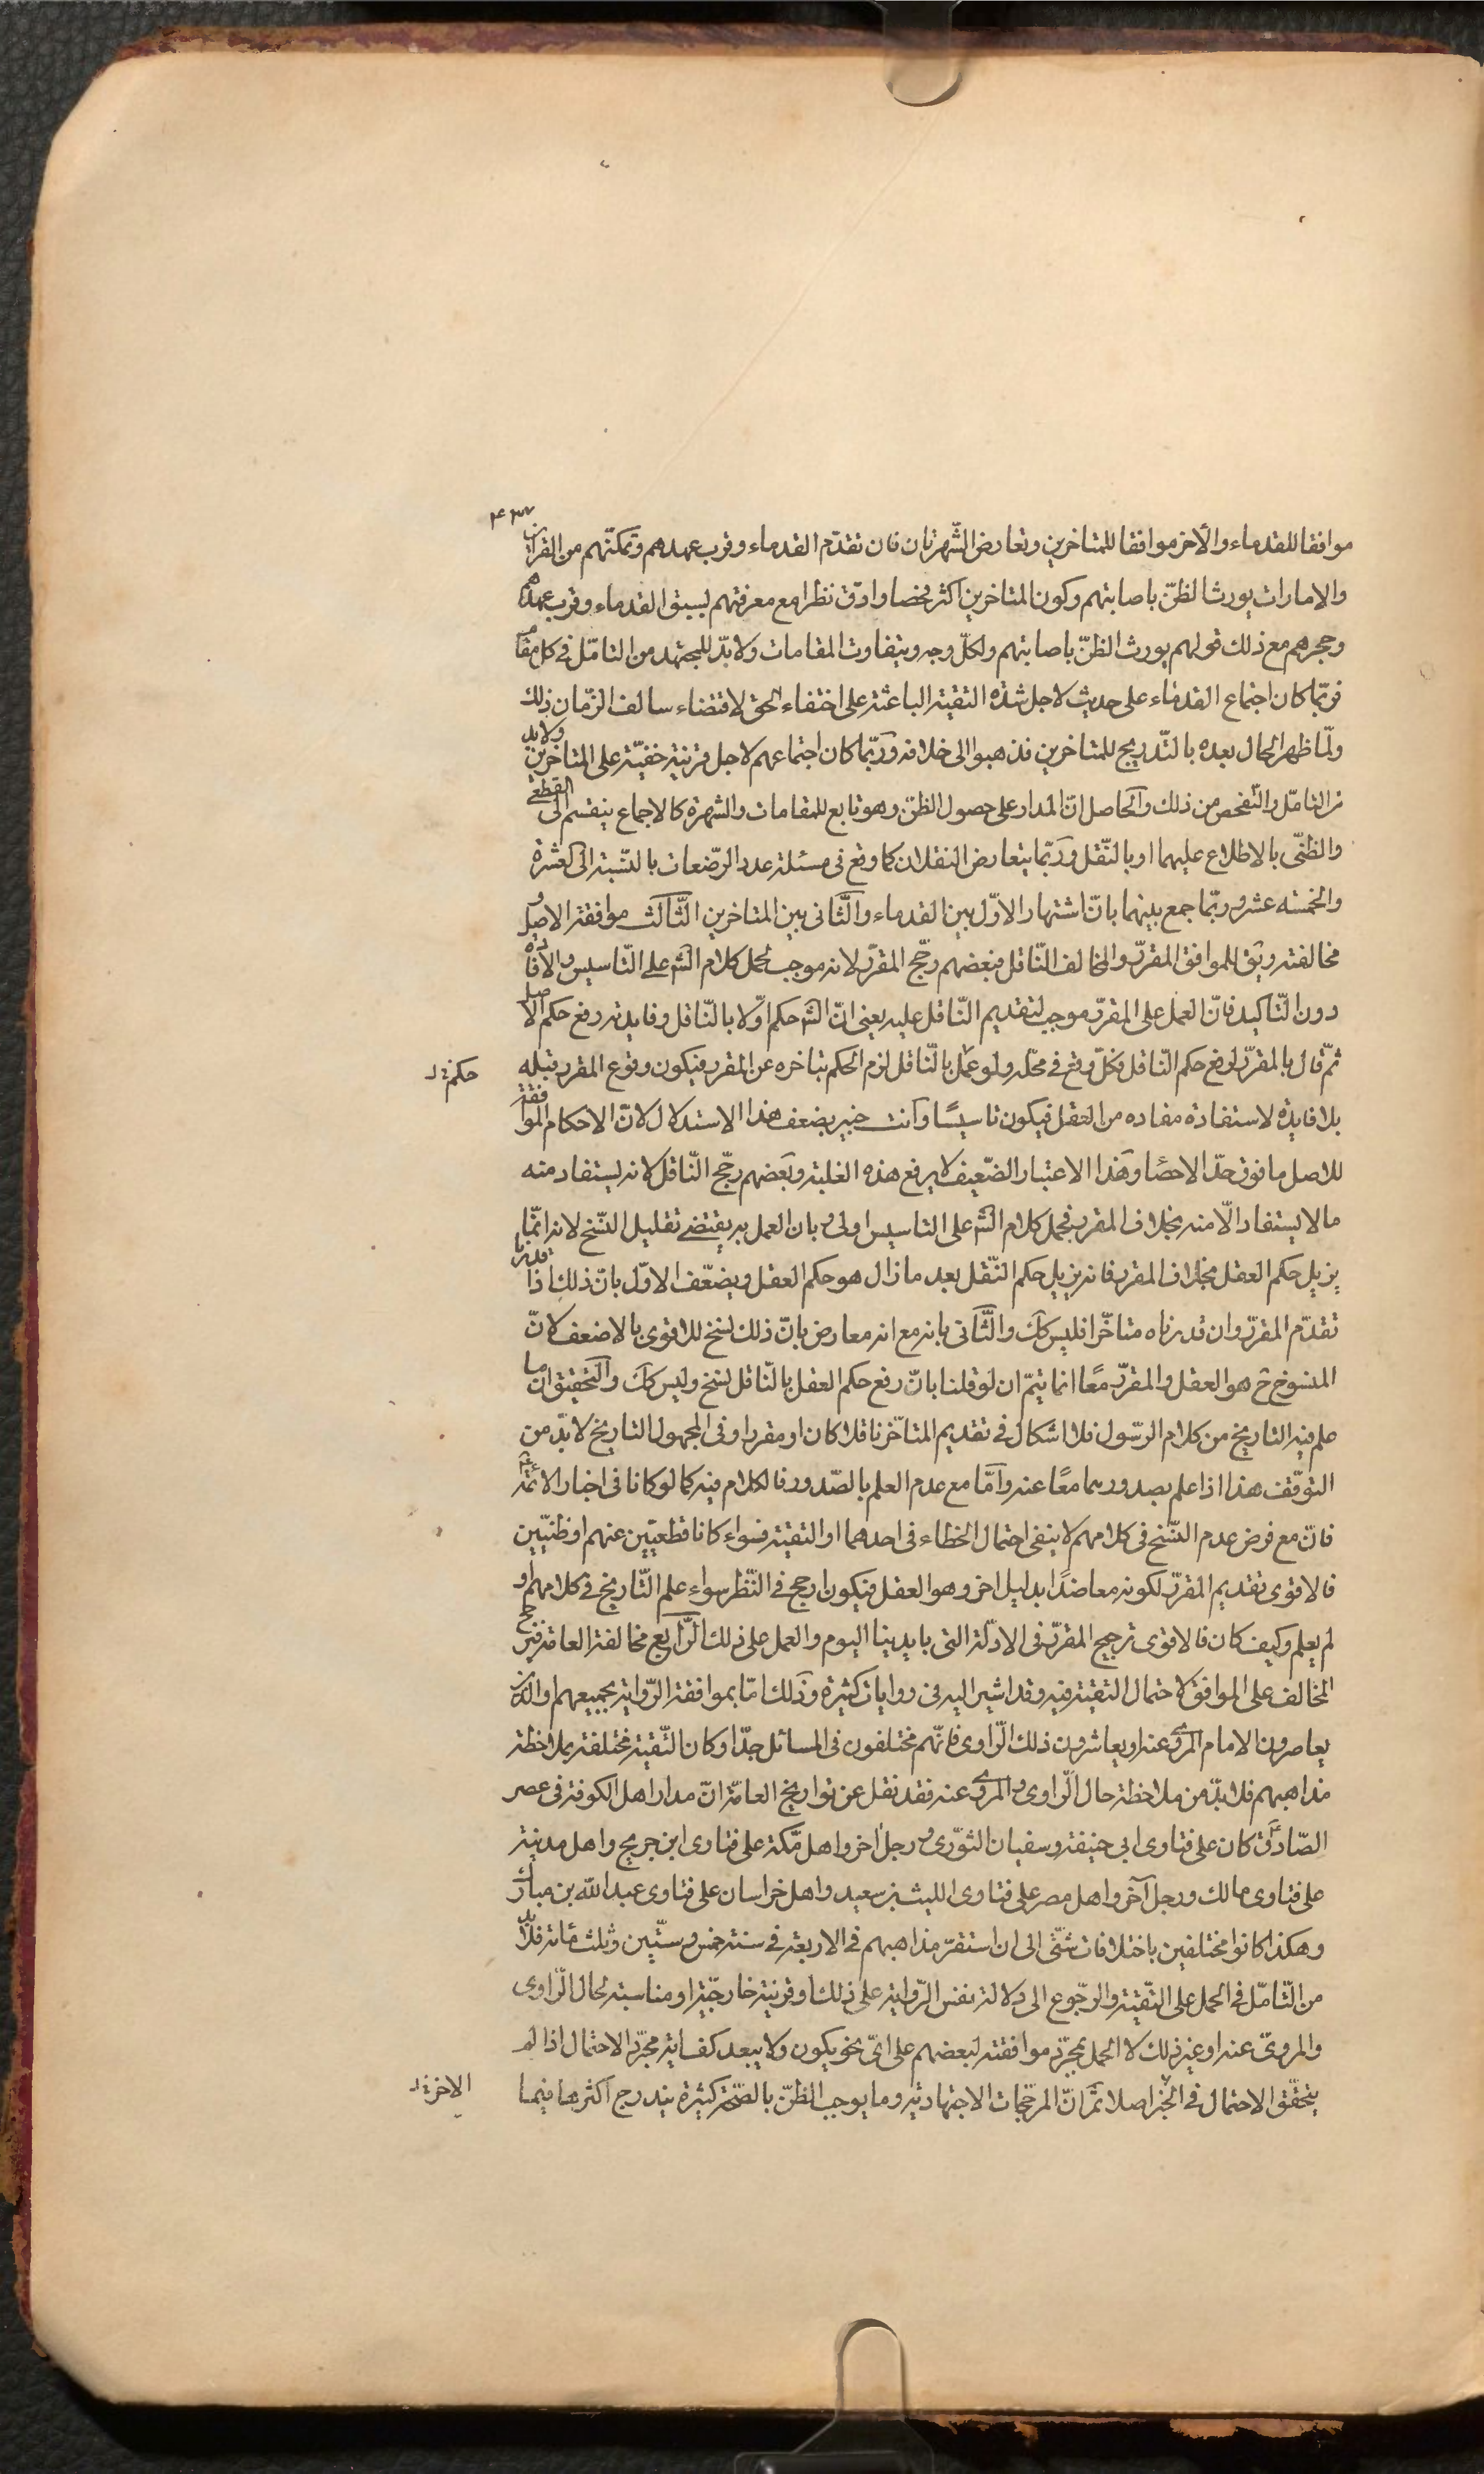 ۴۳۷
موافقا للقدماء والأخر موافقا للمتاخرين وتعارض الشّهرتان فان تقدّم القدماء وقرب عهدهم وتمكنّهم من القراين
والامارات يورث الظنّ باصابتهم وكون المتاخرين اكثر فحصا وادّق نظرا مع معرفتهم بسبق القدماء وقرب عهدهم
وهجرهم مع ذلك قولهم يورث الظنّ باصابتهم ولكلّ وجه ويتفاوت المقامات ولا بدّ للمجتهد من التامّل فى كل مقام
فربّما كان اجتماع القدماء على حديث لاجل شدّة التقيّة الباعثة على اختفاء الحق لاقتضاء سالف الزّمان ذلك
ولمّا ظهر الحال بعده بالتّدريج للمتاخرين فذهبوا الى خلافه وربّما كان اجتماعهم لاجل قرينة خفيّة على المتاخرين ولا بد
من التامّل والتفحص من ذلك والحاصل انّ المدار على حصول الظنّ وهو تابع للمقامات والشهرة كالاجماع ينقسم الى القطعى
والظنّى بالاطلاع عليهما او بالنّقل وربّما يتعارض النقلان كما وقع فى مسئلة عدد الرّضعات بالنّسبة الى العشرة
والخمسه عشر وربّما جمع بينهما بانّ اشتهار الاوّل بين القدماء والثّانى بين المتاخرين الثّالث موافقة الاصل و
مخالفته ويق للموافق المقرّر والمخالف النّاقل فبعضهم رجّح المقرّر لانه موجب لحمل كلام الش على التّاسيس والافادة
دون التّاكيد فانّ العمل على المقرّر موجب لتقديم النّاقل عليه يعنى انّ الش حكم اوّلا بالنّاقل وفايدته رفع حكم الاصل
ثمّ قال بالمقرّر لرفع حكم النّاقل فكلّ وقع فى محلّه ولو عمل بالنّاقل لزم الحكم بتاخره عن المقرر فيكون وقوع المقرر قبله
حكمة لـ
بلا فايدة لاستفادة مفاده من العقل فيكون تاسيسًا وانت خبير بضعف هذا الاستدلال لانّ الاحكام الموافقة
للاصل ما فوق حدّ الاحصا وهذا الاعتبار الضّعيف لا يرفع هذه الغلبة وبعضهم رجّح النّاقل لانه يستفاد منه
ما لا يستفاد الّا منه بخلاف المقرر فحمل كلام الش على التاسيس اولى وبان العمل به يقتضى تقليل النّسخ لانه انّما
يزيل حكم العقل بخلاف المقرر فانه يزيل حكم النّقل بعد ما زال هو حكم العقل ويضعّف الاوّل بانّ ذلك اذا قدرنا
تقدّم المقرّر وان قدرناه متاخّرا فليس كك والثّانى بانه مع انه معارض بانّ ذلك نسخ للاقوى بالاضعف لانّ
المنسوخ ح هو العقل والمقرّر معًا انما يتمّ ان لو قلنا بانّ رفع حكم العقل بالنّاقل نسخ وليس كك والتحقيق انّ ما
علم فيه التاريخ من كلام الرسّول فلا اشكال فى تقديم المتاخّر ناقلا كان او مقررا وفى المجهول التاريخ لا بدّ من
التوقّف هذا اذا علم بصدورهما معًا عنه وامّا مع عدم العلم بالصّدور فالكلام فيه كما لو كانا فى اخبار الائمّة
فانّ مع فرض عدم النّسخ فى كلامهم لا ينفى احتمال الخطاء فى احدهما او التقيّة فسواء كانا قطعيّين عنهم او ظنيّين
فالاقوى تقديم المقرّر لكونه معاضدًا بدليل اخر وهو العقل فيكون ارجح فى النّظر سواء علم التّاريخ فى كلامهم او
لم يعلم وكيف كان فالاقوى ترجيح المقرّر فى الادلّة التى بايدينا اليوم والعمل على ذلك الرّابع مخالفة العامّة فيرجح
المخالف على الموافق لاحتمال التقيّة فيه وقد اشير اليه فى روايات كثيرة وذلك امّا بموافقة الرّواية لجميعهم والذين
يعاصرون الامام المروى عنه او يعاشرون ذلك الرّاوى فانّهم مختلفون فى المسائل جدّا وكان التّقية مختلفة بملاحظة
مذاهبهم فلا بدّ من ملاحظة حال الرّاوى والمروى عنه فقد نقل عن تواريخ العامّة انّ مدار اهل الكوفة فى عصر
الصّادقّ كان على فتاوى ابى حنيفة وسفيان الثورّى ورجل اخر واهل مكّة على فتاوى ابن جريج واهل مدينة
على فتاوى مالك ورجل آخر واهل مصر على فتاوى الليث بن سعيد واهل خراسان على فتاوى عبد اللّه بن مبارك
وهكذا كانوا مختلفين باختلافات شتّى الى ان استقرّ مذاهبهم فى الاربعة فى سنة خمس وستّين وثلث مائة فلا بد
من التّامّل فى الحمل على التّقية والرجّوع الى دلالة نفس الرّواية على ذلك او قرينة خارجيّة او مناسبة لحال الرّاوى
والمروىّ عنه او غير ذلك لا الحمل بمجرّد موافقته لبعضهم على اىّ نحو يكون ولا يبعد كفاية مجرّد الاحتمال اذا لم
يتحقّق الاحتمال فى الخبر اصلا ثم انّ المرجّحات الاجتهاديّة وما يوجب الظنّ بالصّحّة كثيرة يندرج اكثرها فيما
الاخر لـ